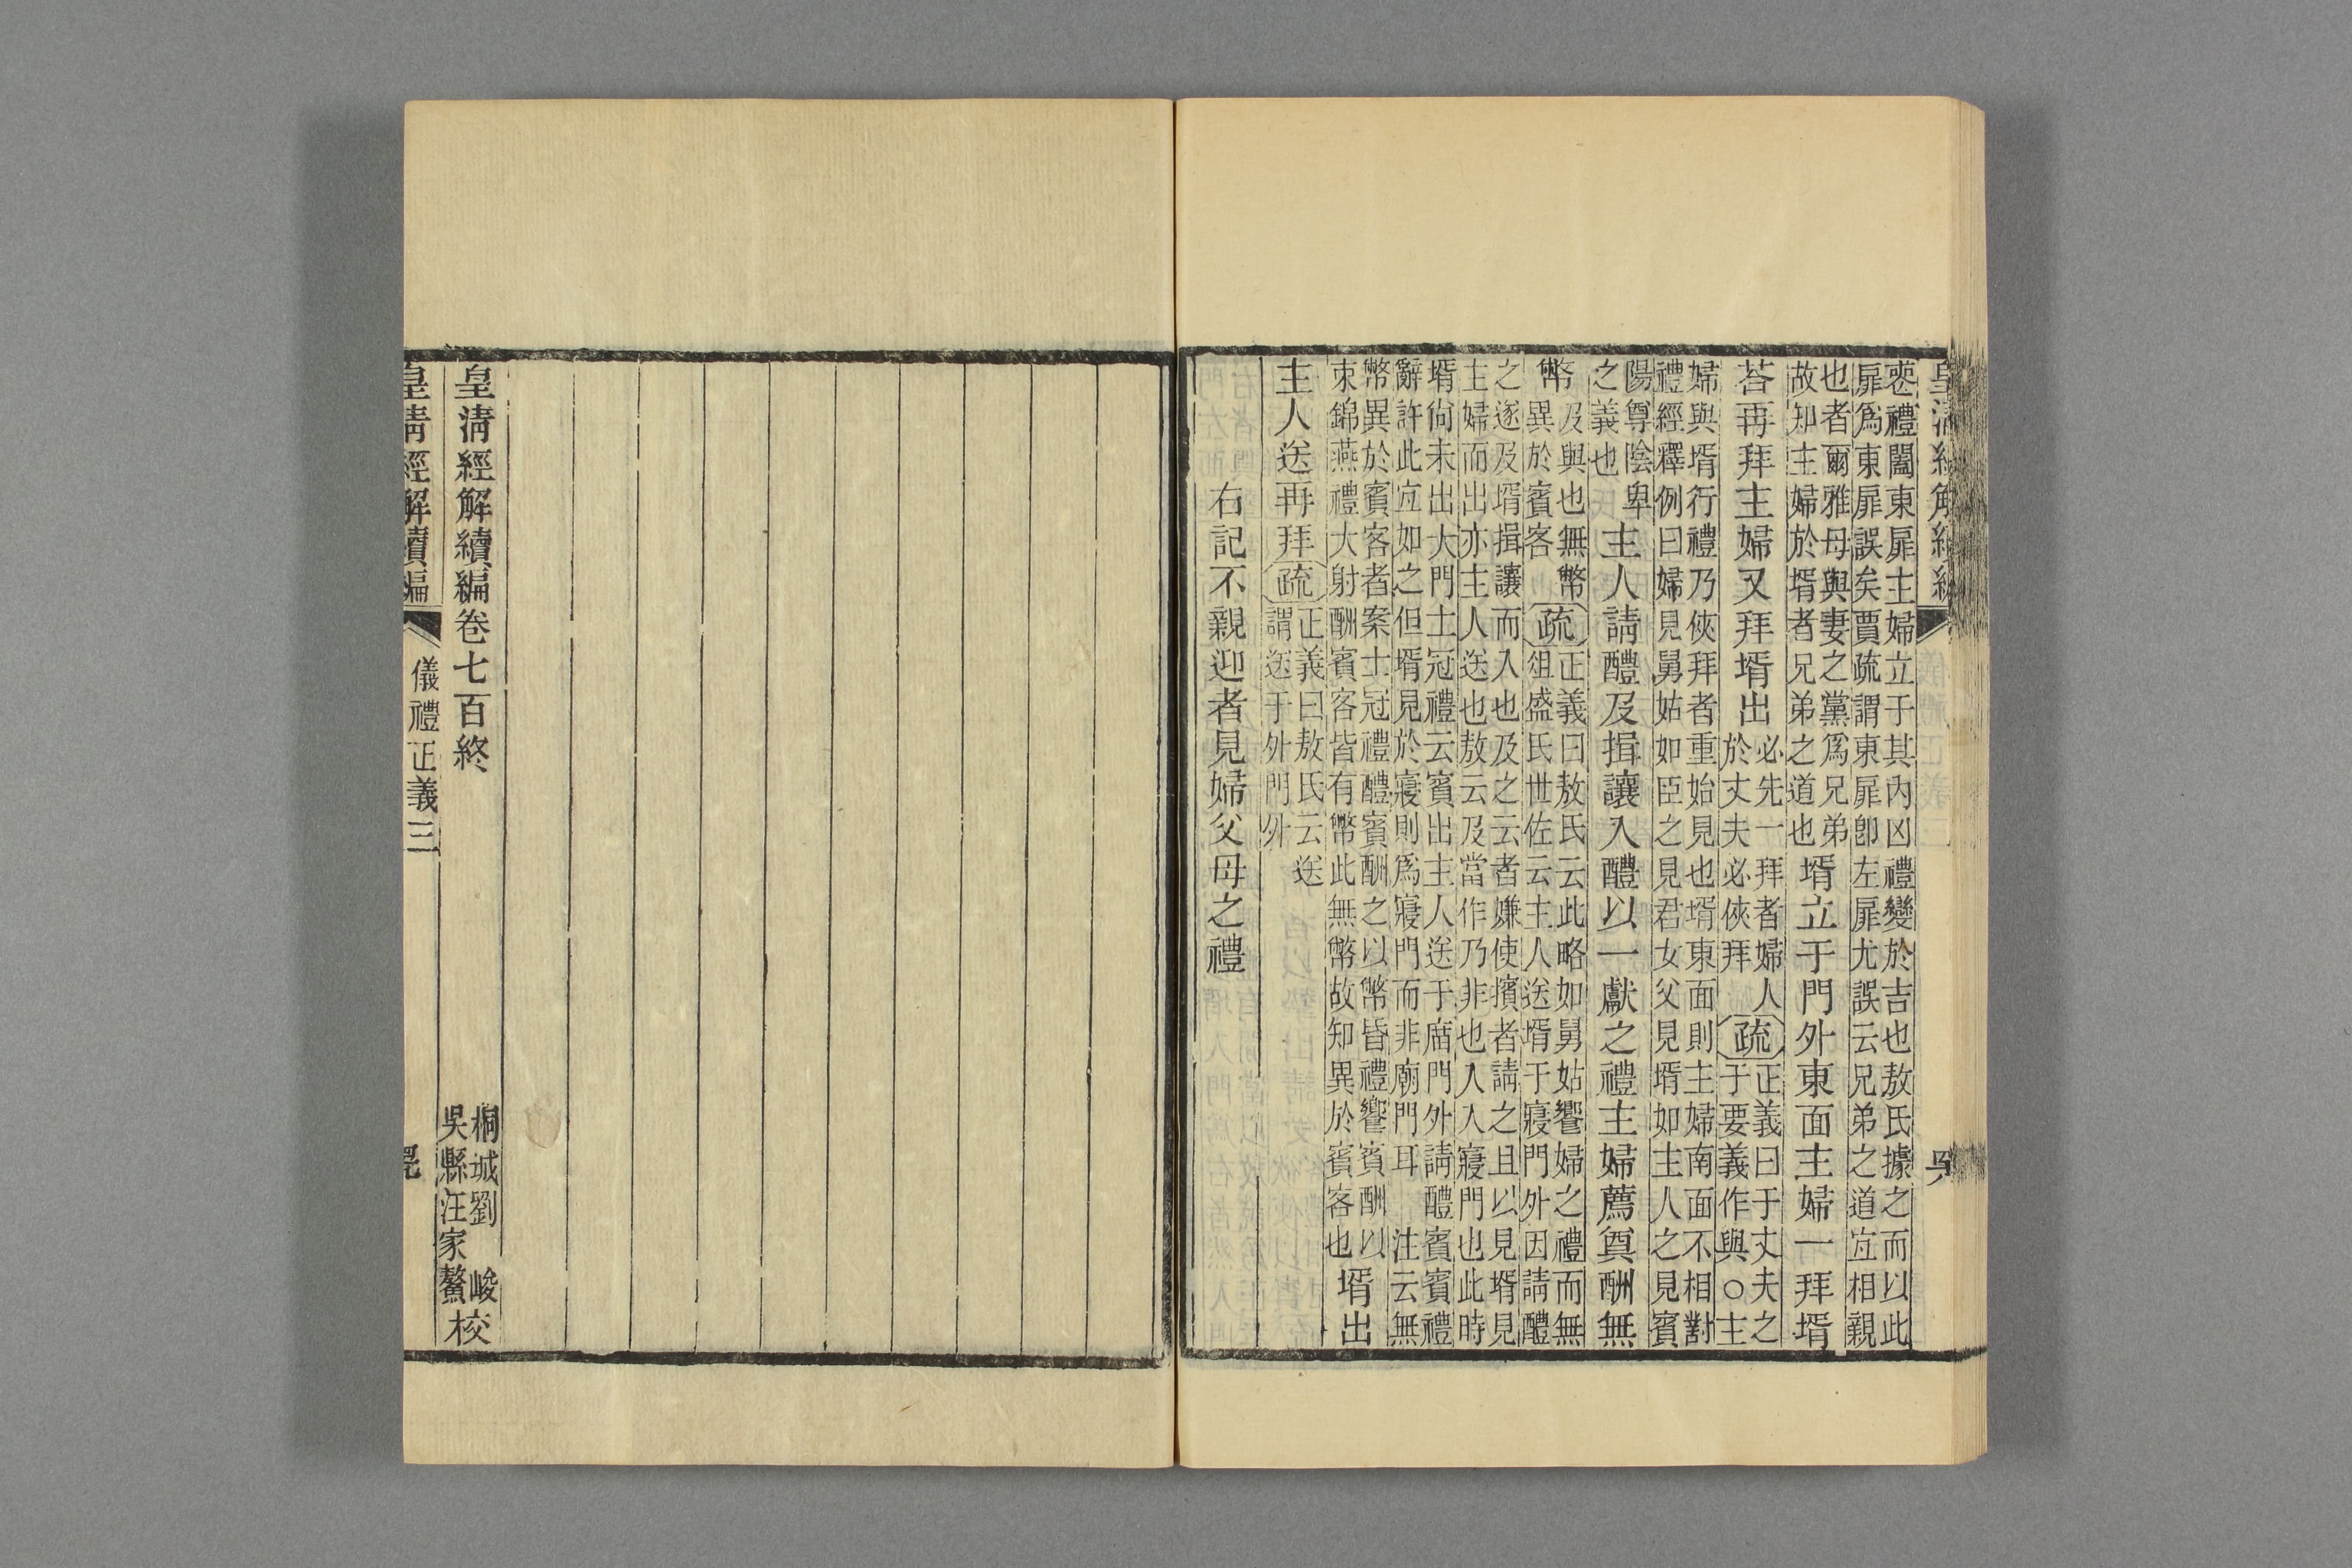 喪禮闔東扉主婦立于其內凶禮變於吉也敖氏據之而以此
扉爲東扉誤矣賈疏謂東扉卽左扉尤誤云兄弟之道宜相親
也者爾雅母與妻之黨爲兄弟
故知主婦於壻者兄弟之道也
壻立于門外東面主婦一拜壻
荅再拜主婦又拜壻出
必先一拜者婦人
於丈夫必俠拜
疏
正義曰于丈夫之
于要義作與○主
婦與壻行禮乃俠拜者重始見也壻東面則主婦南面不相對
禮經釋例曰婦見舅姑如臣之見君女父見壻如主人之見賓
陽尊陰卑
之義也
主人請醴及揖讓入醴以一獻之禮主婦薦奠酬無
幣
及與也無幣
異於賓客
疏
正義曰敖氏云此略如舅姑饗婦之禮而無
俎盛氏世佐云主人送壻于寢門外因請醴
之遂及壻揖讓而入也及之云者嫌使擯者請之且以見壻見
主婦而出亦主人送也敖云及當作乃非也入入寢門也此時
壻尚未出大門士冠禮云賓出主人送于庿門外請醴賓賓禮
辭許此宜如之但壻見於寢則爲寢門而非廟門耳　注云無
幣異於賓客者案士冠禮醴賓酬之以幣昏禮饗賓酬以
束錦燕禮大射酬賓客皆有幣此無幣故知異於賓客也
壻出
主人送再拜
疏
正義曰敖氏云送
謂送于外門外
右記不親迎者見婦父母之禮
皇清經解續編卷七百終
桐城劉　峻
吳縣汪家鰲
校
皇清經解續編
儀禮正義三